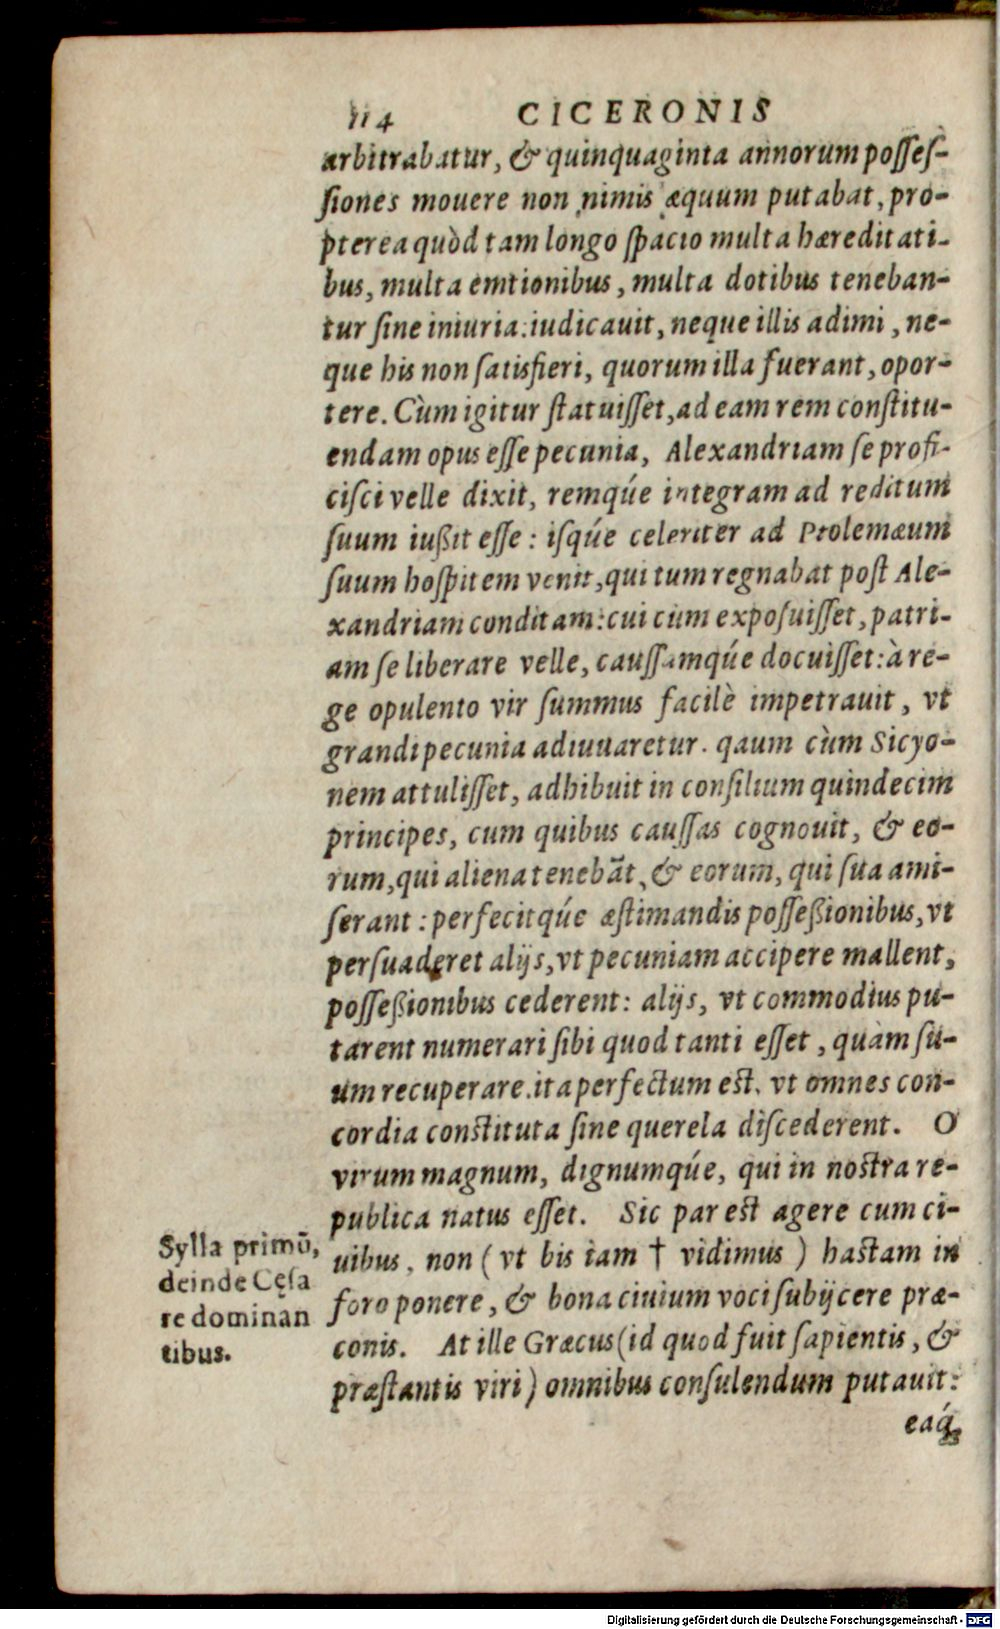 114 CICERONIS
arbitrabatur, & quinquaginta annorum posses-
siones mouere non nimis æquum putabat, pro-
pterea quòd tam longo spacio multa hæreditati-
bus, multa emtionibus, multa dotibus teneban-
tur sine iniuria: iudicauit, neque illis adimi, ne-
que his non satisfieri, quorum illa fuerant, opor-
tere. Cùm igitur statuisset, ad eam rem constitu-
endam opus esse pecunia, Alexandriam se profi-
cisci velle dixit, remqúe integram ad reditum
suum iußit esse: isqúe celeriter ad Ptolemæum
suum hospitem venit, qui tum regnabat post Ale-
xandriam conditam: cui cùm exposuisset, patri-
am se liberare velle, caussamqúe docuisset: à re-
ge opulento vir summus facilè impetrauit, vt
grandi pecunia adiuuaretur. qaum cùm Sicyo-
nem attulisset, adhibuit in consilium quindecim
principes, cum quibus caussas cognouit, & eo-
rum, qui aliena tenebãt, & eorum, qui sua ami-
serant: perfecitqúe æstimandis posseßionibus, vt
persuaderet alijs, vt pecuniam accipere mallent,
posseßionibus cederent: alijs, vt commodius pu-
tarent numerari sibi quod tanti esset, quàm su-
um recuperare. ita perfectum est, vt omnes con-
cordia constituta sine querela discederent. O
virum magnum, dignumqúe, qui in nostra re-
publica natus esset. Sic par est agere cum ci-
uibus, non (vt bis iam † vidimus) hastam in
foro ponere, & bona ciuium voci subijcere præ-
conis. At ille Græcus (id quod fuit sapientis, &
præstantis viri) omnibus consulendum putauit:
eaq́;
Sylla primũ,
deinde Cęsa
re dominan
tibus.
Digitalisierung gefördert durch die Deutsche Forschungsgemeinschaft - DFG